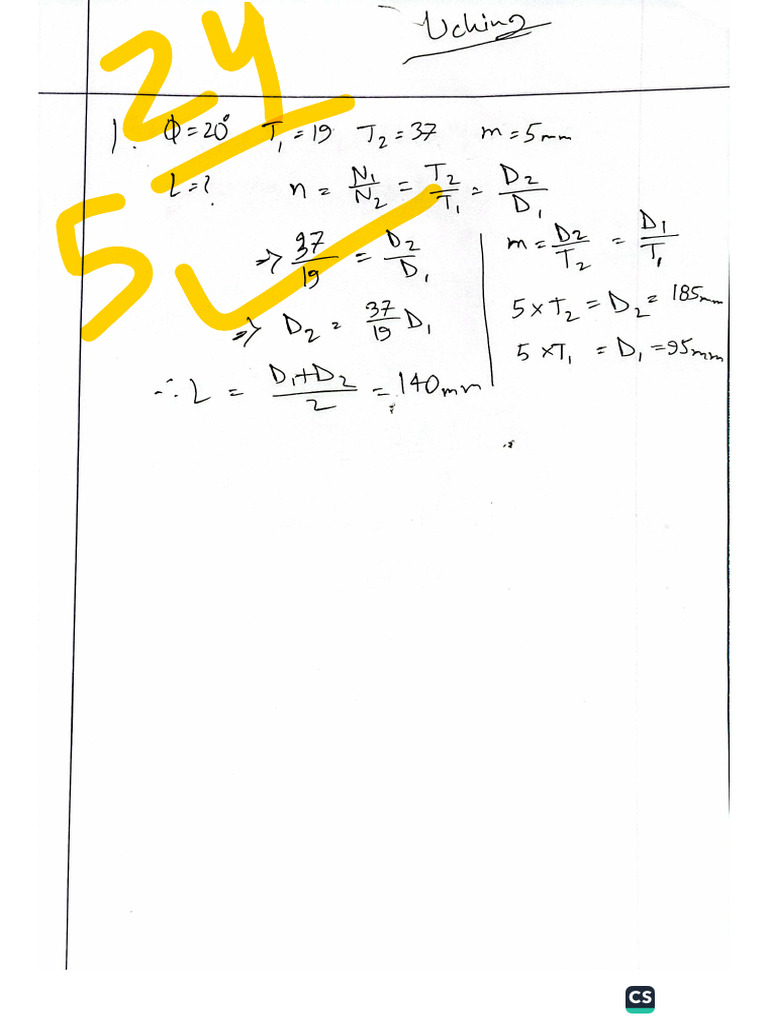 Uching
24
5
1. Φ = 20° T₁ = 19 T₂ = 37 m = 5mm
L = ? n = N₁/N₂ = T₂/T₁ = D₂/D₁
⇒ 37/19 = D₂/D₁
⇒ D₂ = 37/19 D₁
∴ L = (D₁+D₂)/2 = 140mm
m = D₂/T₂ = D₁/T₁
5 × T₂ = D₂ = 185mm
5 × T₁ = D₁ = 95mm
CS